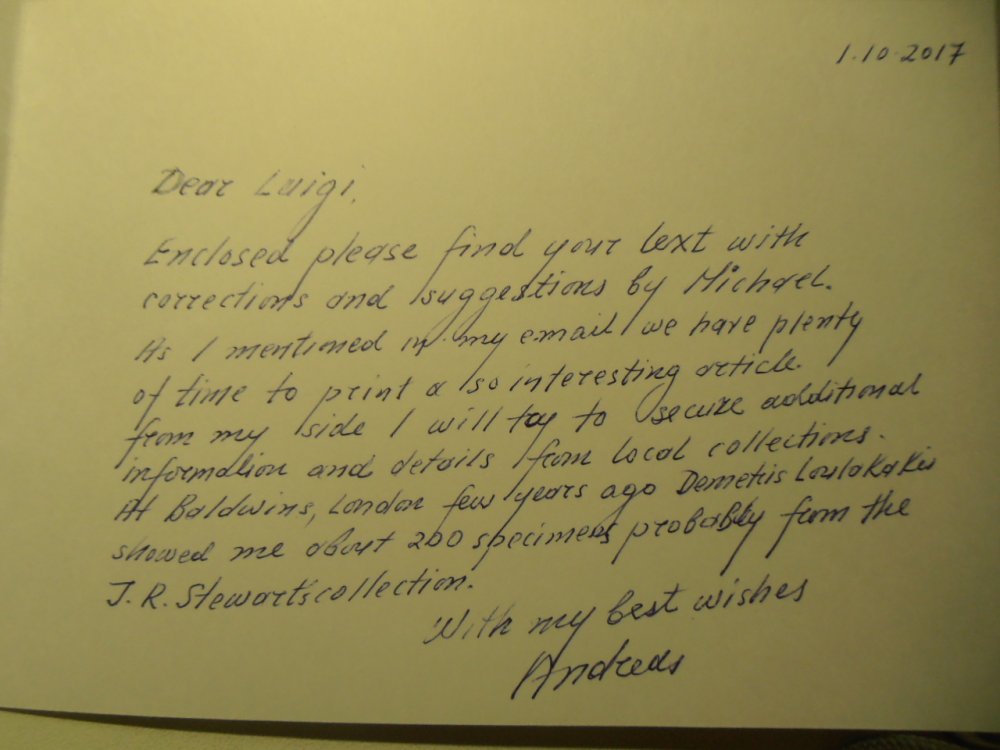 1.10.2017
Dear Luigi,
Enclosed please find your text with
corrections and suggestions by Michael.
As I mentioned in my email we have plenty
of time to print a so interesting article.
from my side I will try to secure additional
information and details from local collections.
At Baldwins, London few years ago Demetris Loulakakis
showed me about 200 specimens probably from the
J.R. Stewarts collection.
With my best wishes
Andreas